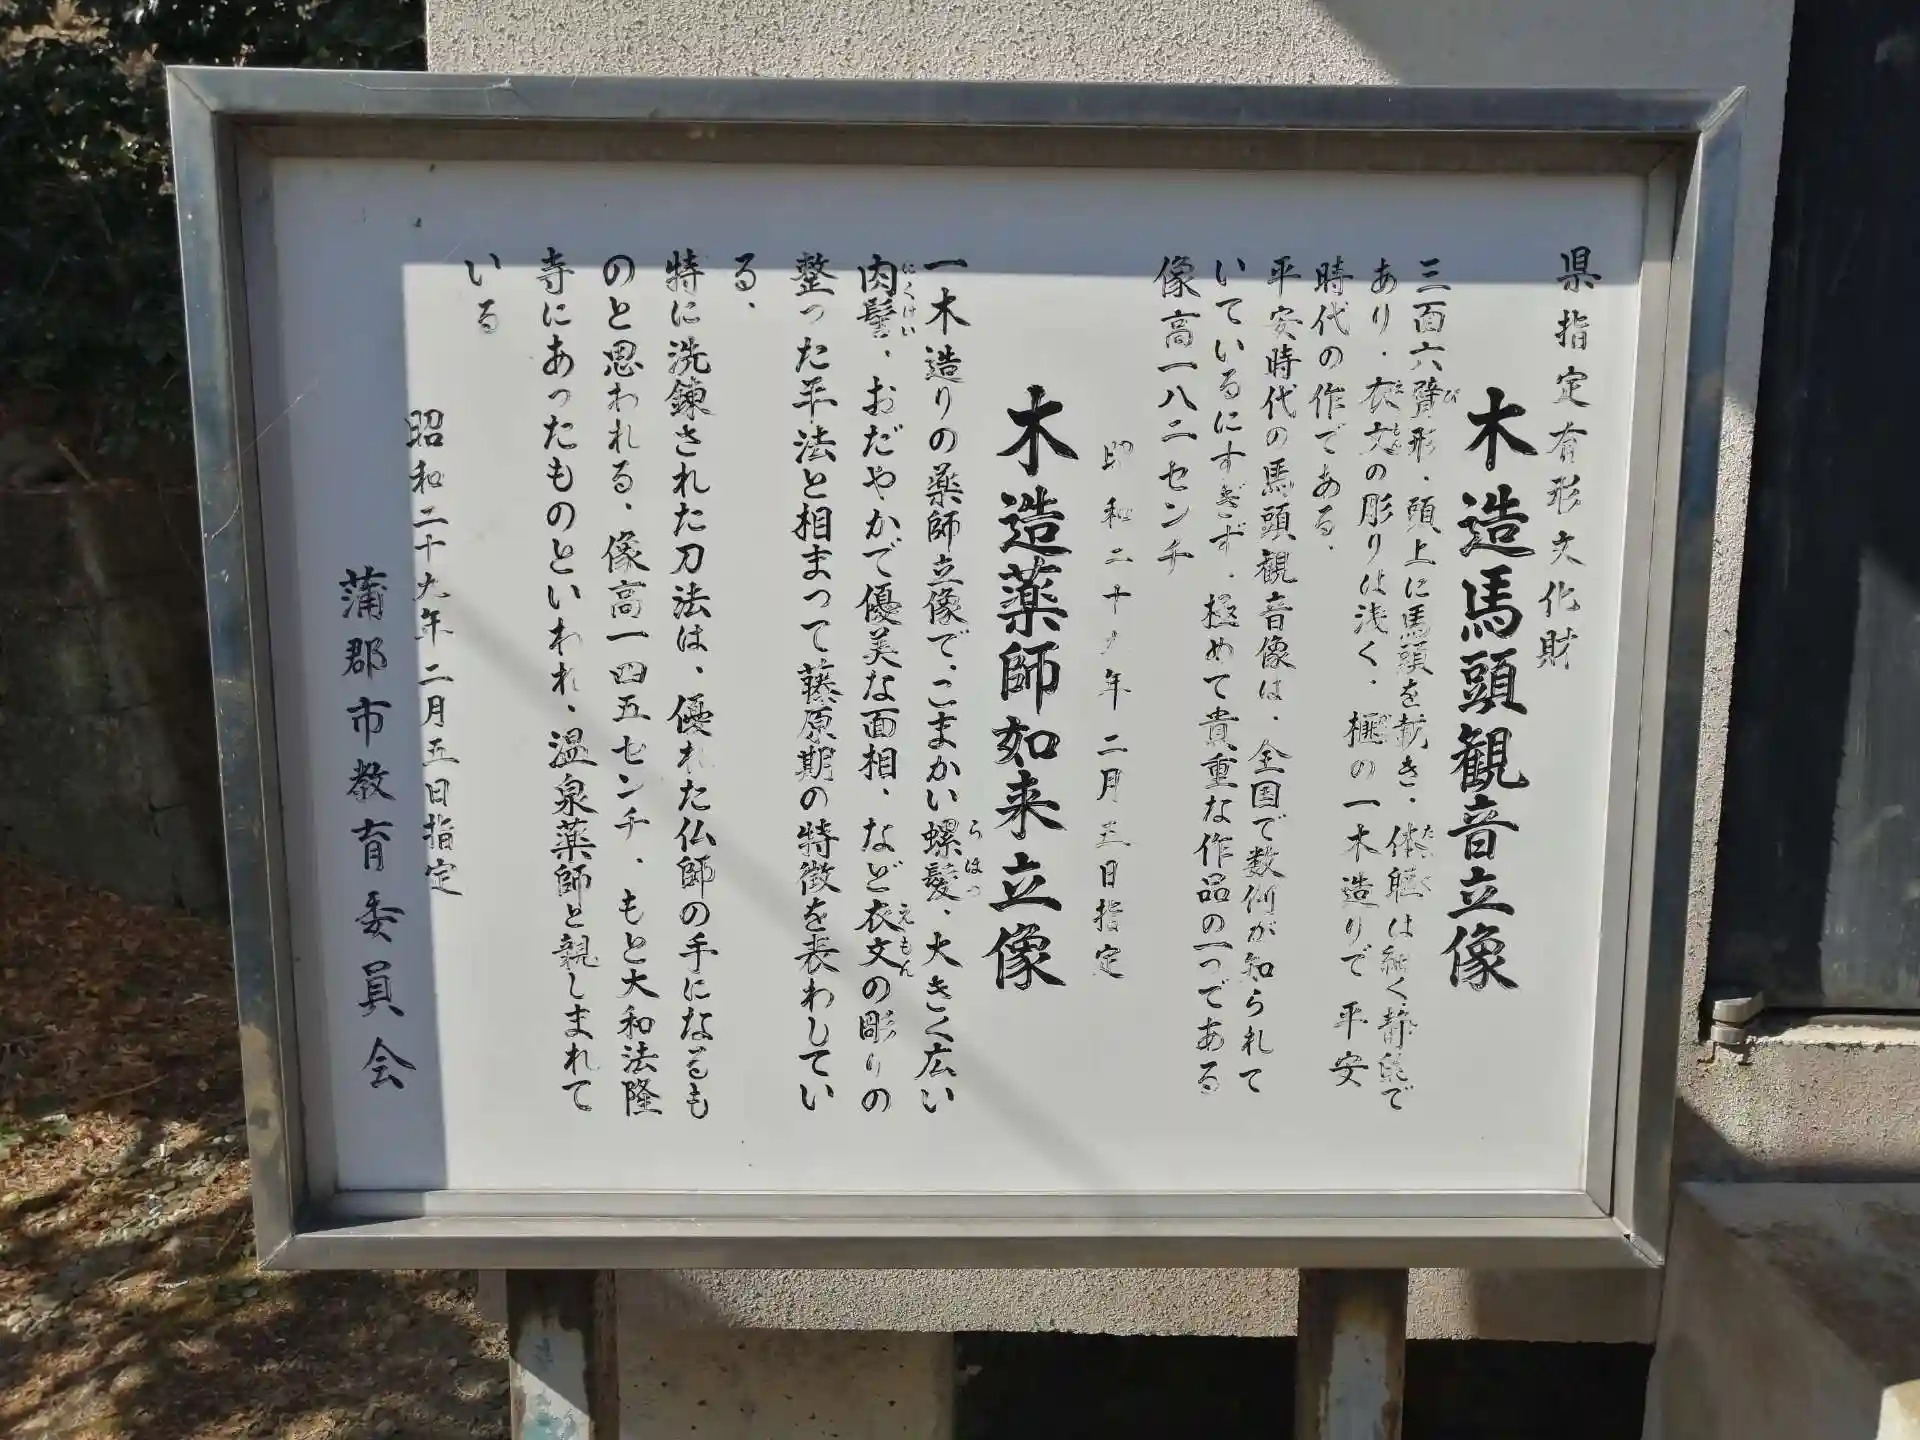 県指定有形文化財
木造馬頭観音立像
三面六臂形、頭上に馬頭を戴き、体軀は細く静的で
あり、衣文の彫りは浅く、榧の一木造りで平安
時代の作である、
平安時代の馬頭観音像は、全国で数例が知られて
いているにすぎず、極めて貴重な作品の一つである
像高一八二センチ
昭和二十九年二月五日指定
木造薬師如来立像
一木造りの薬師立像で、こまかい螺髪、大きく広い
肉髻、おだやかで優美な面相、など衣文の彫りの
整った平法と相まって藤原期の特徴を表わしてい
る、
特に洗錬された刀法は、優れた仏師の手になるも
のと思われる、像高一四五センチ、もと大和法隆
寺にあったものといわれ、温泉薬師と親しまれて
いる
昭和二十九年二月五日指定
蒲郡市教育委員会